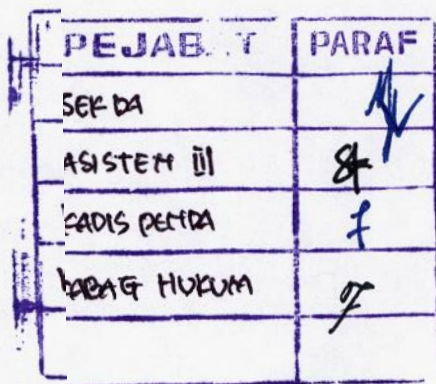 PEJABAT PARAF
SEKDA
ASISTEN III
KADIS PENDA
KABAG HUKUM